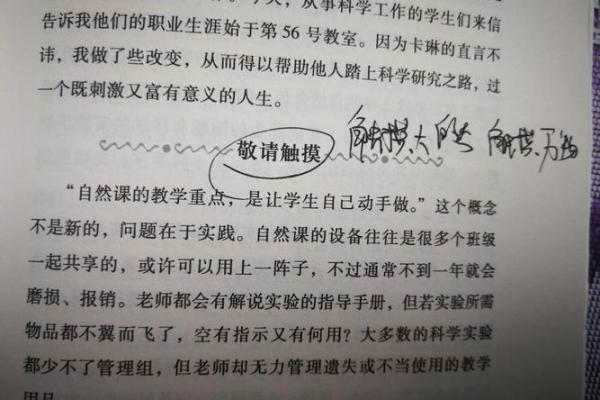 告诉我他们的职业生涯始于第56号教室。因为卡琳的直言不
讳，我做了些改变，从而得以帮助他人踏上科学研究之路，过
一个既刺激又富有意义的人生。
敬请触摸
触摸大自然 触摸万物
“自然课的教学重点，是让学生自己动手做。”这个概念
不是新的，问题在于实践。自然课的设备往往是很多个班级
一起共享的，或许可以用上一阵子，不过通常不到一年就会
磨损、报销。老师都会有解说实验的指导手册，但若实验所需
物品都不翼而飞了，空有指示又有何用？大多数的科学实验
都少不了管理组，但老师却无力管理遗失或不当使用的教学